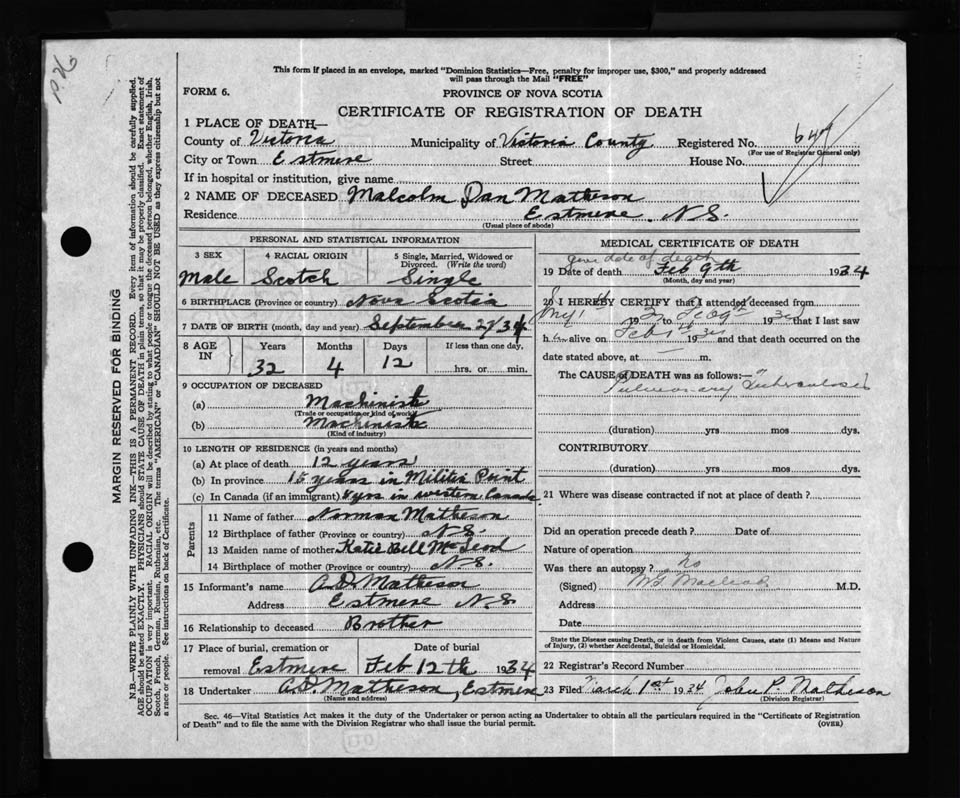 This form if placed in an envelope, marked "Dominion Statistics—Free, penalty for improper use, $300," and properly addressed
will pass through the Mail "FREE"
FORM 6.
PROVINCE OF NOVA SCOTIA
CERTIFICATE OF REGISTRATION OF DEATH
1 PLACE OF DEATH—
County of Victoria Municipality of Victoria County Registered No. 649
(For use of Registrar General only)
City or Town Estmere Street House No.
If in hospital or institution, give name
2 NAME OF DECEASED Malcolm Dan Matheson
Residence Estmere N.S.
(Usual place of abode)
PERSONAL AND STATISTICAL INFORMATION
3 SEX 4 RACIAL ORIGIN 5 Single, Married, Widowed or Divorced. (Write the word)
Male Scotch Single
6 BIRTHPLACE (Province or country) Nova Scotia
7 DATE OF BIRTH (month, day and year) September 27
8 AGE IN Years Months Days If less than one day,
32 4 12 hrs. or min.
9 OCCUPATION OF DECEASED
(a) Machinist
(Trade or occupation or kind of work)
(b) Machinist
(Kind of industry)
10 LENGTH OF RESIDENCE (in years and months)
(a) At place of death 12 years
(b) In province 15 years in Militia Point
(c) In Canada (if an immigrant) yrs in western Canada
Parents
11 Name of father Norman Matheson
12 Birthplace of father (Province or country) N.S.
13 Maiden name of mother Katie Bell McLeod
14 Birthplace of mother (Province or country) N.S.
15 Informant's name A.D. Matheson
Address Estmere N.S.
16 Relationship to deceased Brother
17 Place of burial, cremation or removal Date of burial
Estmere Feb 12th 1934
18 Undertaker A.D. Matheson, Estmere
(Name and address)
MEDICAL CERTIFICATE OF DEATH
give date of death
19 Date of death Feb 9th 1934
(Month, day and year)
20 I HEREBY CERTIFY that I attended deceased from
193 to Feb 193 that I last saw
h alive on Feb 193 and that death occurred on the
date stated above, at m.
The CAUSE of DEATH was as follows:—
Pulmonary Tuberculosis
(duration) yrs mos dys.
CONTRIBUTORY
(duration) yrs mos dys.
21 Where was disease contracted if not at place of death?
Did an operation precede death? Date of
Nature of operation
Was there an autopsy? No
(Signed) Macleod M.D.
Address
Date
State the Disease causing Death, or in death from Violent Causes, state (1) Means and Nature
of Injury, (2) whether Accidental, Suicidal or Homicidal.
22 Registrar's Record Number
23 Filed March 1st 1934 John P. Matheson
(Division Registrar)
Sec. 46—Vital Statistics Act makes it the duty of the Undertaker or person acting as Undertaker to obtain all the particulars required in the "Certificate of Registration
of Death" and to file the same with the Division Registrar who shall issue the burial permit. (OVER)
MARGIN RESERVED FOR BINDING
N.B.—WRITE PLAINLY WITH UNFADING INK—THIS IS A PERMANENT RECORD. Every item of information should be carefully supplied.
AGE should be stated EXACTLY. PHYSICIANS should STATE CAUSE OF DEATH in plain terms, so that it may be properly classified. Exact statement of
OCCUPATION is very important. RACIAL ORIGIN will be described by stating to what people or tongue the deceased person belonged, whether English, Irish,
Scotch, French, German, Russian, Ruthenian, etc. The terms "AMERICAN" or "CANADIAN" SHOULD NOT BE USED as they express citizenship but not
a race or people. See instructions on back of Certificate.